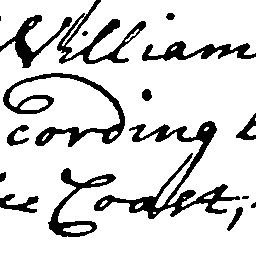 William
cording
Coast,